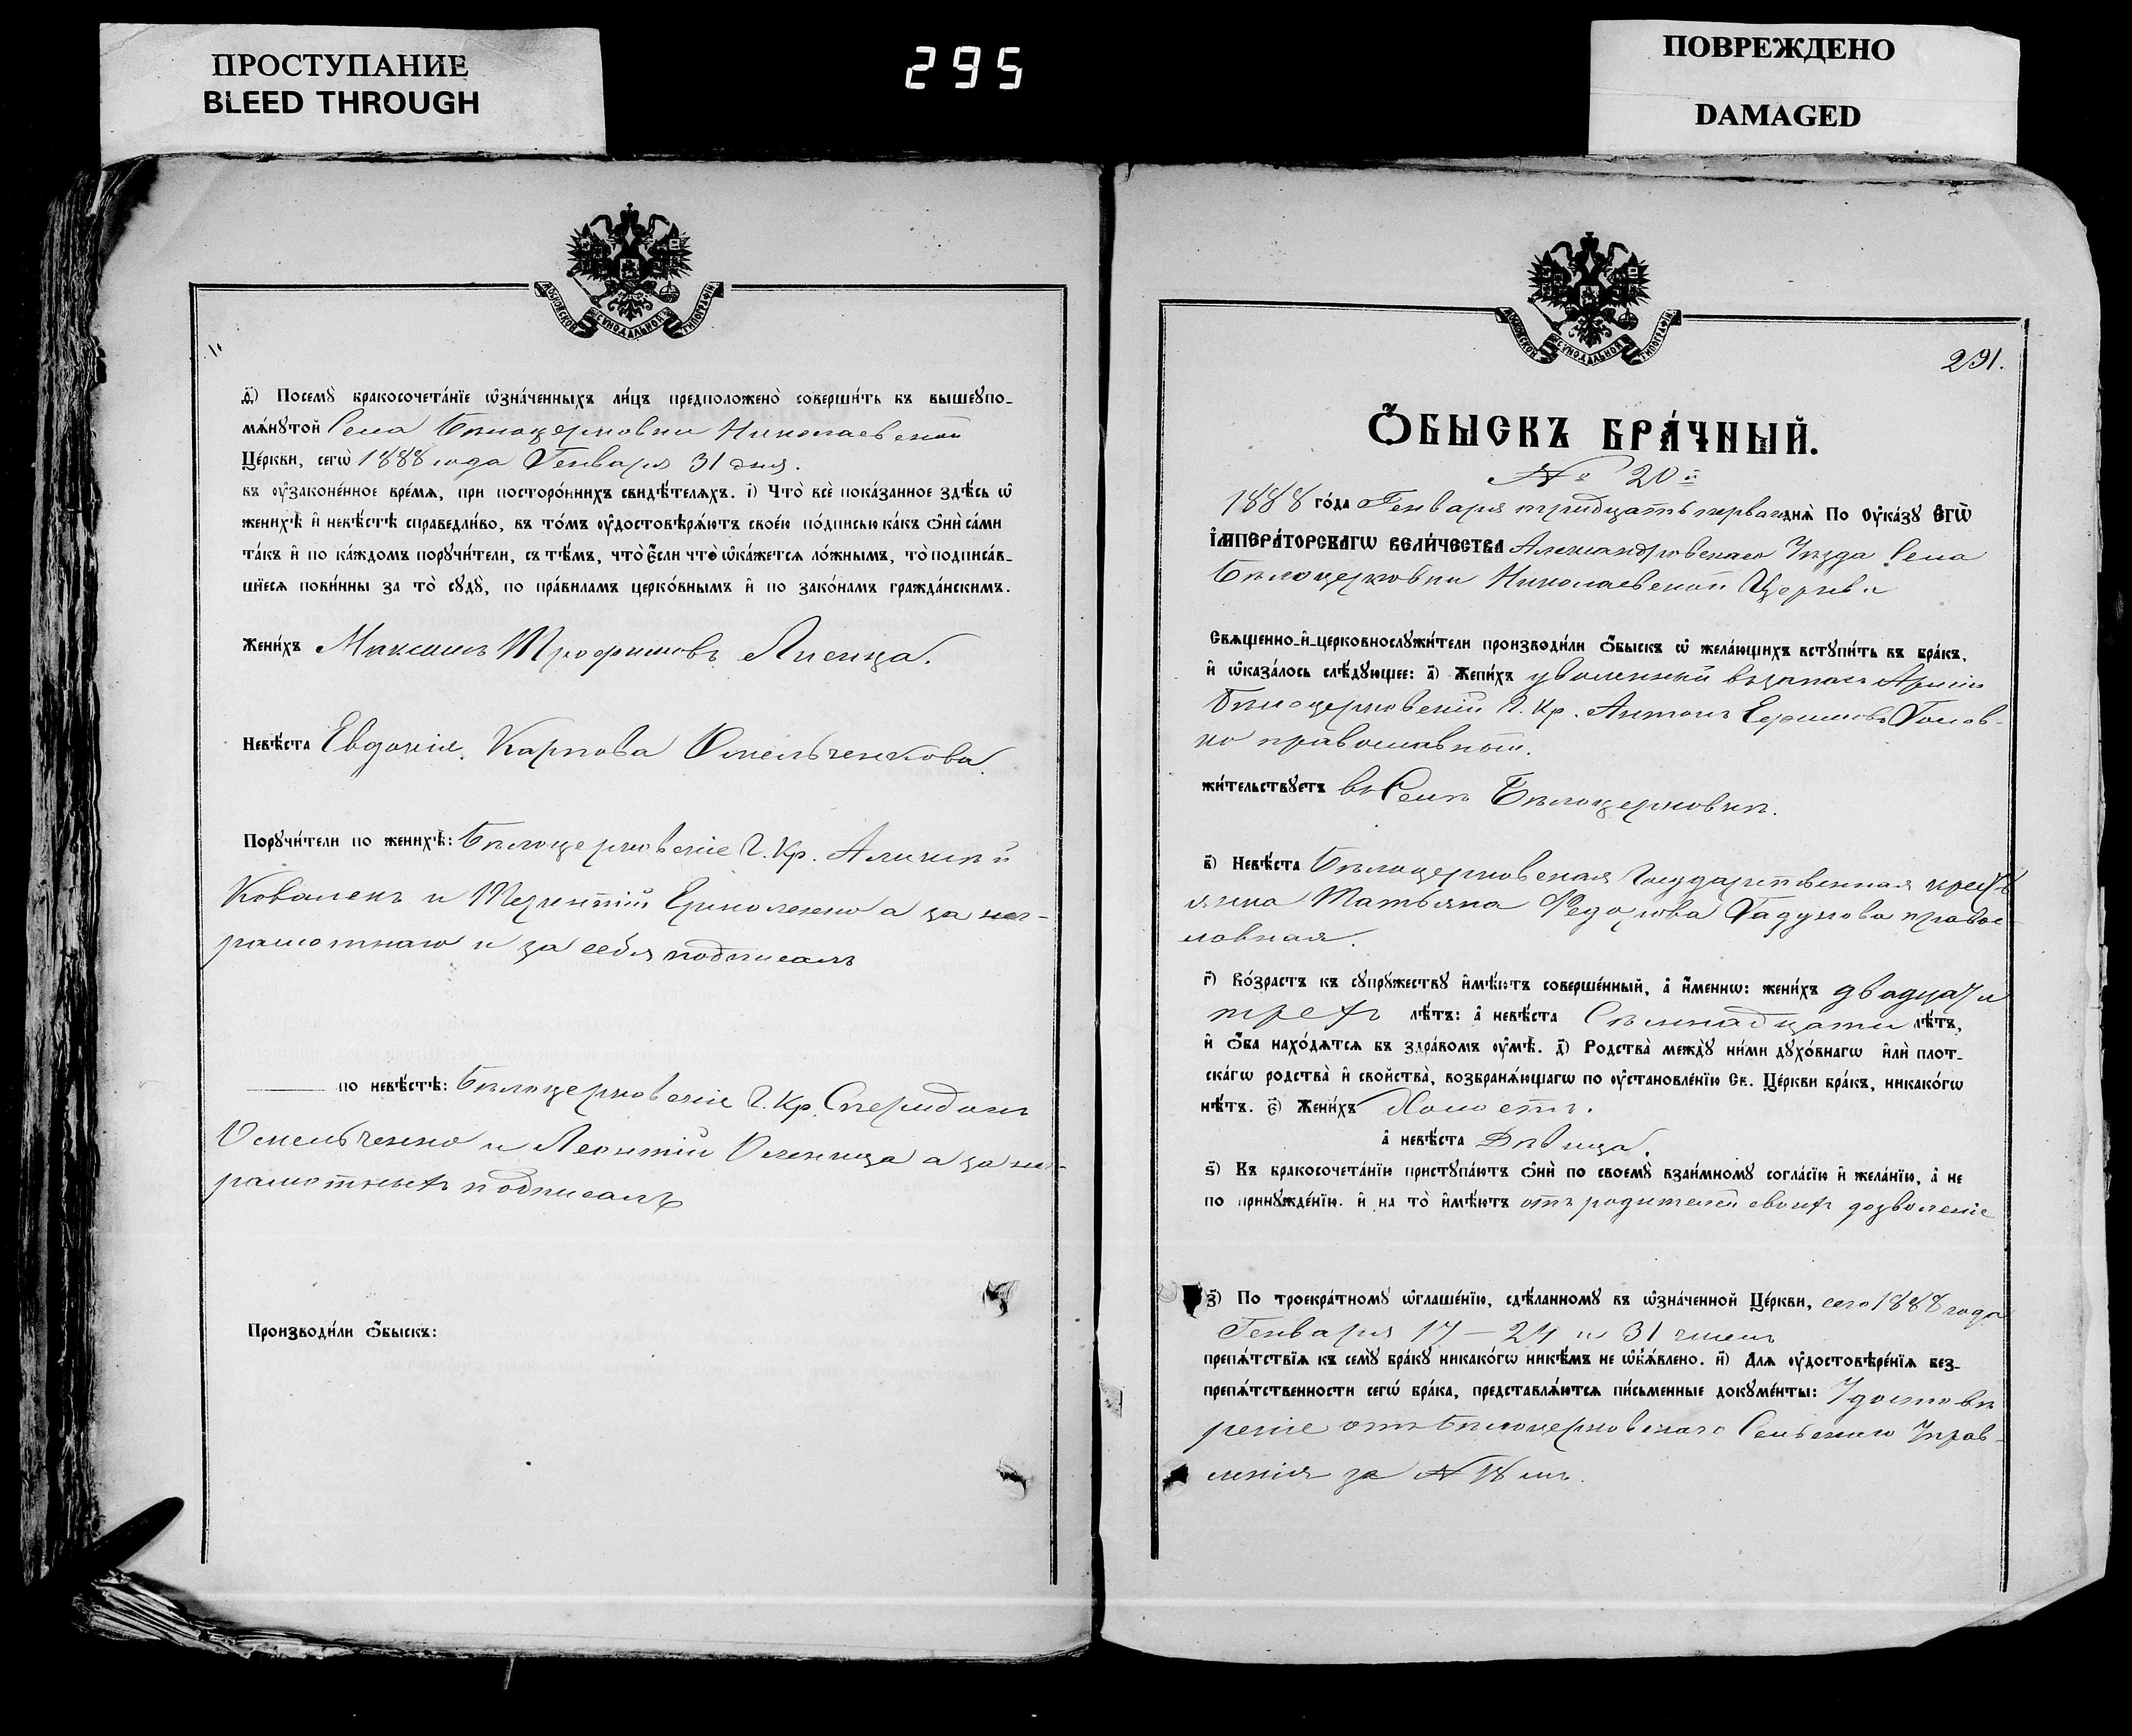 ПРОСТУПАНИЕ
BLEED THROUGH
295
ПОВРЕЖДЕНО
DAMAGED
МОСКОВСКОЙ СѴНОДАЛЬНОЙ ТИПОГРАФІИ
д҃) Посемꙋ̀ бракосочета́нїе ѡ҆зна́ченныхъ ли́цъ предположено̀ соверши́ть въ вышеꙋпо-
мѧ́нꙋтой Села Бѣлоцерковки Николаевской
Це́ркви, сегѡ̀ 1888 года Генваря 31 дня.
въ ᲂу҆законе́нное вре́мѧ, при посторо́ннихъ свидѣ́телѧхъ. і҃) Что̀ всѐ пока́занное здѣ́сь ѡ҆
женихѣ̀ и҆ невѣ́стѣ справедли́во, въ то́мъ ᲂу҆достовѣрѧ́ютъ свое́ю по́дписью ка́къ ѻ҆нѝ са́ми
та́къ и҆ по ка́ждомъ порꙋчи́тели, съ тѣ́мъ, что̀ є҆́сли что̀ ѡ҆ка́жется ло́жнымъ, то̀ подписа́в-
шїеся пови́нны за то̀ сꙋдꙋ̀, по пра́виламъ церко́внымъ и҆ по зако́намъ гражда́нскимъ.
Жени́хъ Максимъ Трофимовъ Лисица.
Невѣ́ста Евдокія Карпова Омельченкова.
Порꙋчи́тели по женихѣ̀: Бѣлоцерковскіе Г. Кр. Алексѣй
Коваленъ и Терентій Ермоленко а за нег-
рамотнаго и за себя подписалъ
по невѣ́стѣ: Бѣлоцерковскіе Г. Кр. Спиридонъ
Омельченко и Леонтій а за не-
рамотныхъ подписалъ
Производи́ли ѻ҆́быскъ:
МОСКОВСКОЙ СѴНОДАЛЬНОЙ ТИПОГРАФІИ
291.
Ѻ҆́БЫСКЪ БРА́ЧНЫЙ.
№ 20й
1888 го́да Генваря тридцать перваго днѧ̀ По ᲂу҆ка́зꙋ Є҆ГѠ̀
І҆МПЕРА́ТОРСКАГѠ ВЕЛИ́ЧЕСТВА Александровскаго Уѣзда Села
Бѣлоцерковки Николаевской Церкви
Свѧщенно-и҆-церковнослꙋжи́тели производи́ли ѻ҆́быскъ ѡ҆ жела́ющихъ встꙋпи́ть въ бра́къ,
и҆ ѡ҆каза́лось слѣ́дꙋющее: а҃) Жени́хъ уволенный въ запасъ Арміи
Бѣлоцерковскій Г. Кр. Антонъ Голов-
ко православной.
жи́тельствꙋетъ въ Селѣ Бѣлоцерковкѣ.
в҃) Невѣ́ста Бѣлоцерковская Государственная крестъ
янка Татьяна Федорова Гадунова правос-
ловная.
г҃) Во́зрастъ къ сꙋпрꙋ́жествꙋ и҆мѣ́ютъ соверше́нный, а҆ и҆́меннѡ: жени́хъ двадцати
трехъ лѣ́тъ: а҆ невѣ́ста Семнадцати лѣ́тъ,
и҆ ѻ҆́ба нахо́дѧтся въ здра́вомъ ᲂу҆мѣ̀. д҃) Родства̀ междꙋ̀ ни́ми дꙋхо́внагѡ и҆лѝ плот-
ска́гѡ родства̀ и҆ свойства̀, возбранѧ́ющагѡ по ᲂу҆становле́нїю Св. Це́ркви бра́къ, никако́гѡ
нѣ́тъ. є҃) Жени́хъ Холостъ.
а҆ невѣ́ста Дѣвица.
ѕ҃) Къ бракосочета́нїю пристꙋпа́ютъ ѻ҆нѝ по своемꙋ̀ взаи́мномꙋ согла́сїю и҆ жела́нїю, а҆ не
по принꙋжде́нїю. и҆ на то̀ и҆мѣ́ютъ отъ родителей своихъ дозволеніе
з҃) По троекра́тномꙋ ѡ҆глаше́нїю, сдѣ́ланномꙋ въ ѡ҆зна́ченной Це́ркви, сего 1888 года
Генваря 17 — 24 и 31 чиселъ
препѧ́тствїѧ къ семꙋ̀ бра́кꙋ никако́гѡ никѣ́мъ не ѡ҆б̾ѧ́влено. и҃) Для ᲂу҆достовѣре́нїѧ без-
препѧ́тственности сегѡ̀ бра́ка, представлѧ́ются пи́сьменные докꙋме́нты: Удостовѣ
реніе отъ Бѣлоцерковскаго Сельскаго Управ-
ленія за № 18 мъ.